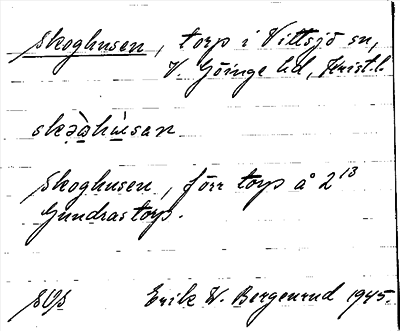 Skoghusen, torp i Vittsjö sn,
V. Göinge hd, Krist. l.
skoghusen, förr torp å 2¹³
Gundrastorp.
Erik W. Bergenrud 1945.